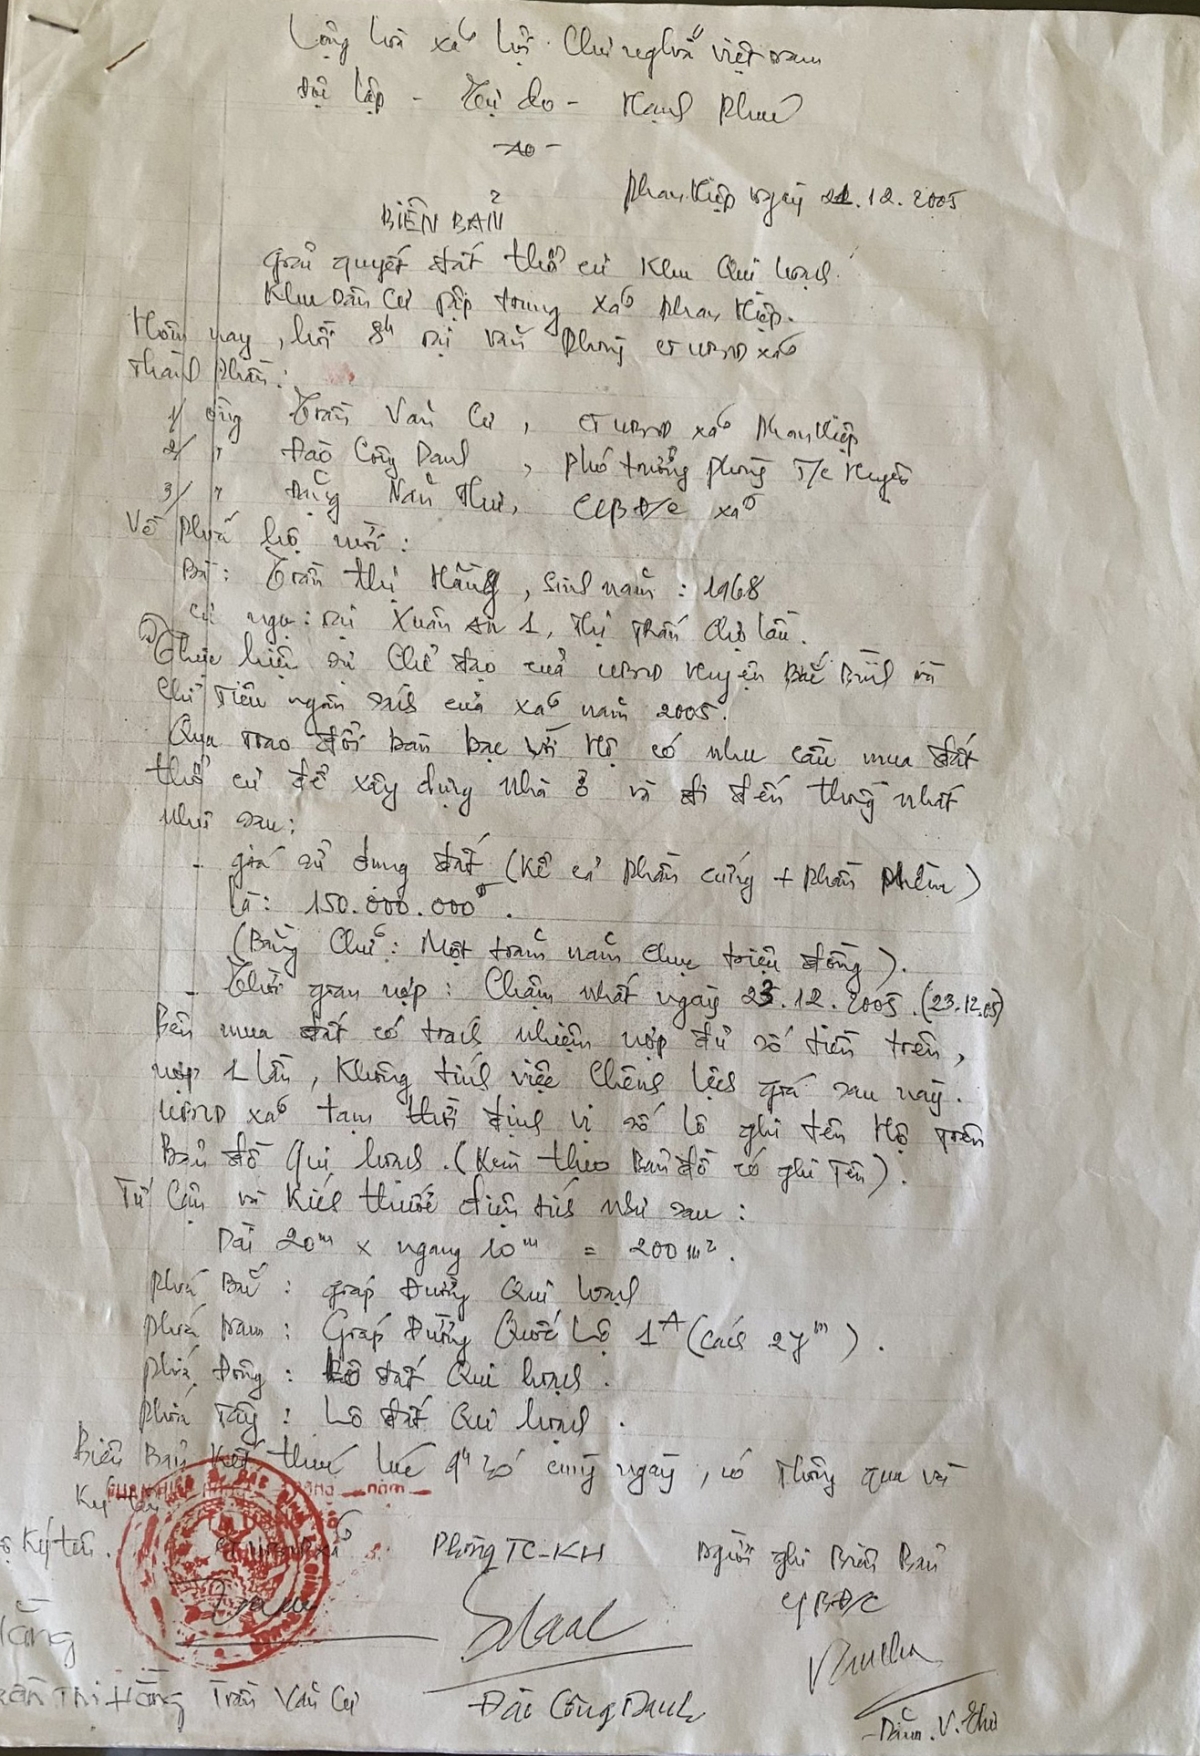 Cộng hòa xã hội Chủ nghĩa Việt Nam
Độc lập - Tự do - Hạnh phúc
Phan Hiệp ngày 21.12.2005
BIÊN BẢN
Giải quyết đất thổ cư Khu Qui hoạch
Khu dân cư tập trung xã Phan Hiệp.
Hôm nay, hồi 8h tại văn phòng CT UBND xã
Thành phần:
1/ ông Trần Văn Cư, CT UBND xã Phan Hiệp
2/ " Đào Công Danh, phó trưởng phòng T/C Huyện
3/ " Đặng Văn Thư, CB Đ/C xã
Về phía hộ mời:
Bà: Trần Thị Hằng, sinh năm: 1968
Cư ngụ: tại Xuân An 1, Thị Trấn Chợ Lầu.
Thực hiện sự chỉ đạo của UBND Huyện Bắc Bình và
chỉ tiêu ngân sách của xã năm 2005.
Qua trao đổi bàn bạc với Hộ có nhu cầu mua đất
thổ cư để xây dựng nhà ở và đi đến thống nhất
như sau:
- giá sử dụng đất (Kể cả phần cứng + phần phềm)
là: 150.000.000đ.
(Bằng Chữ: Một trăm năm chục triệu đồng).
- Thời gian nợp: Chậm nhất ngày 23.12.2005.(23.12.05)
Bên mua đất có trách nhiệm nợp đủ số tiền trên,
nợp 1 lần, Không tính việc chênh lệch giá sau này.
UBND xã tạm thời định vị số lô ghi tên Hộ trên
Bản đồ Qui hoạch. (Kèm theo Bản đồ có ghi Tên).
Tứ Cận và Kích thước diện tích như sau:
Dài 20m x ngang 10m = 200m2.
phía Bắc: giáp Đường Qui hoạch
phía Nam: Giáp Đường Quốc Lộ 1A (cách 27m).
phía Đông: Lô đất Qui hoạch.
phía Tây: Lô đất Qui hoạch.
Biên Bản Kết thúc lúc 9h30 cùng ngày, có thông qua và
Ký tên
Ký tên. CT UBND xã Phòng TC-KH Người ghi Biên Bản
CBĐ/C
Hằng
Trần Thị Hằng Trần Văn Cư Đào Công Danh Đặng.V.Thư